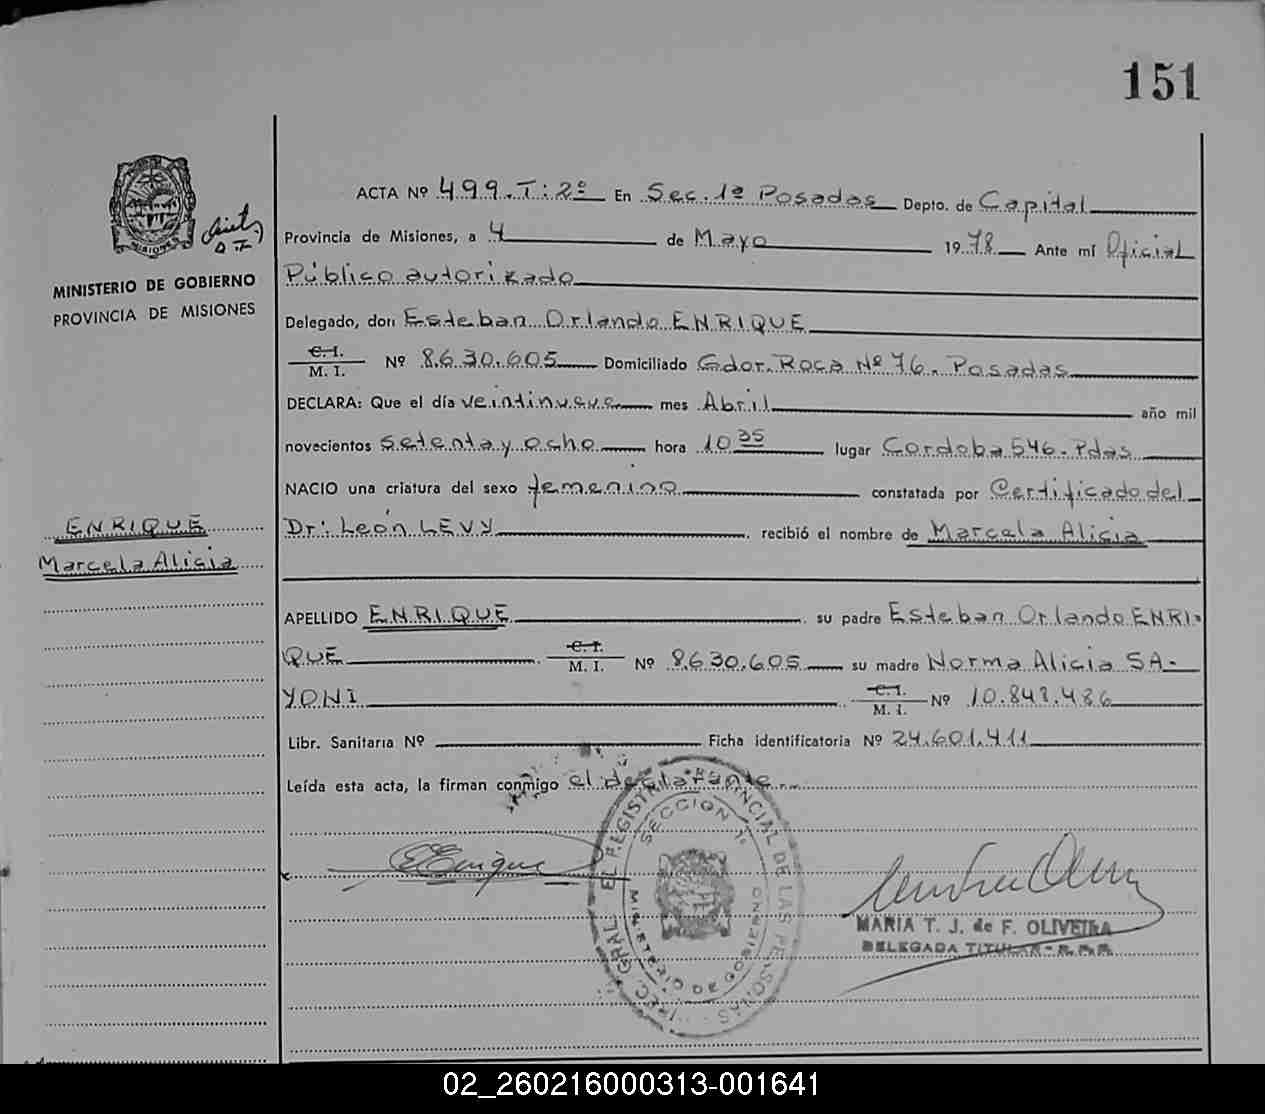 151
ACTA Nº 499. T: 2º En Sec. 1ª Posadas Depto. de Capital
Provincia de Misiones, a 4 de Mayo 1978 Ante mí Oficial
Público autorizado
MISIONES
MINISTERIO DE GOBIERNO
PROVINCIA DE MISIONES
Delegado, don Esteban Orlando ENRIQUE
C. I.
M. I. Nº 8.630.605 Domiciliado Gdor. Roca Nº 76. Posadas
DECLARA: Que el día veintinueve mes Abril año mil
novecientos setenta y ocho hora 10 35 lugar Cordoba 546. Pdas
NACIO una criatura del sexo femenino constatada por Certificado del
Dr: León LEVY recibió el nombre de Marcela Alicia
ENRIQUE
Marcela Alicia
APELLIDO ENRIQUE su padre Esteban Orlando ENRI-
QUE C. I. M. I. Nº 8.630.605 su madre Norma Alicia SA-
YONI C. I. M. I. Nº 10.848.486
Libr. Sanitaria Nº Ficha identificatoria Nº 24.601.411
Leída esta acta, la firman conmigo el declarante
EEnrique
SECCION 1ª
MINISTERIO DE GOBIERNO
MARIA T. J. de F. OLIVEIRA
DELEGADA TITULAR - R.P.P.
02_260216000313-001641